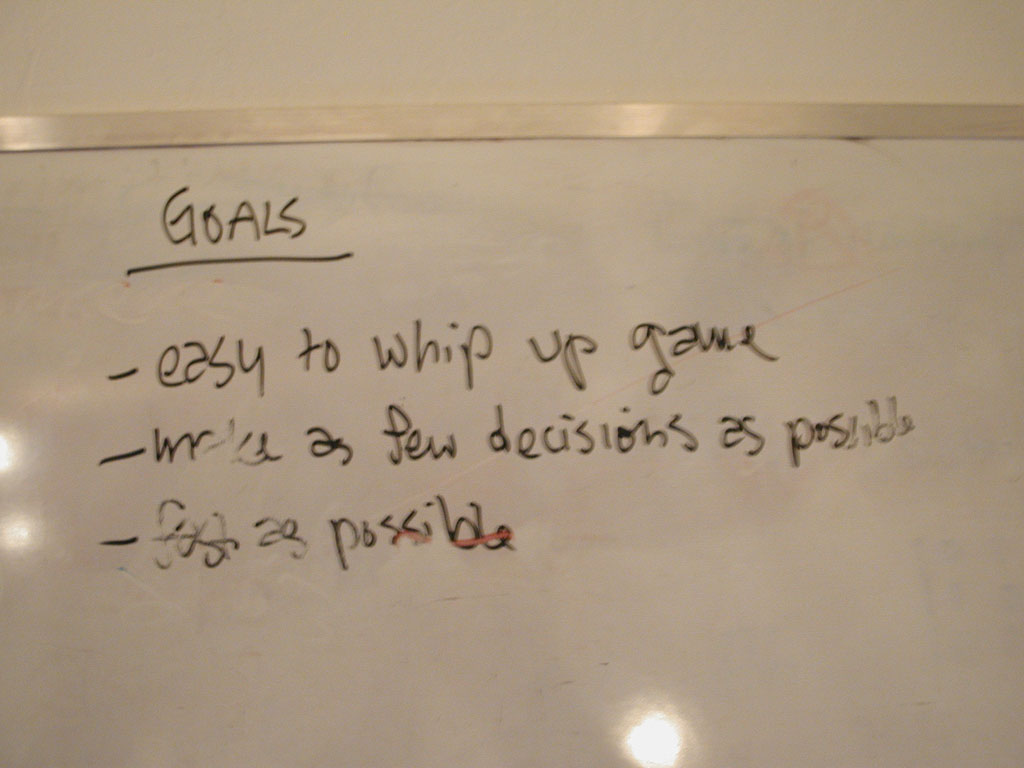 GOALS
- easy to whip up game
- make as few decisions as possible
- fast as possible